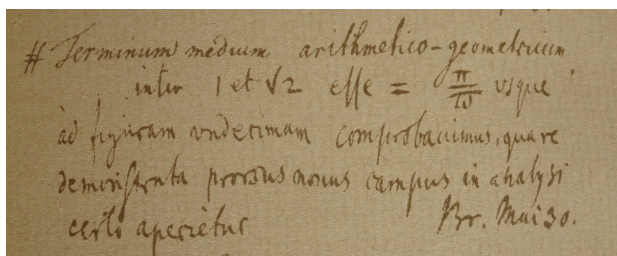 # Terminum medium arithmetico-geometricum
inter 1 et √2 esse = π/ϖ usque
ad figuram undecimam comprobavimus, quare
demonstrata prorsus novus campus in analysi
certo aperietur Br. Mai 30.